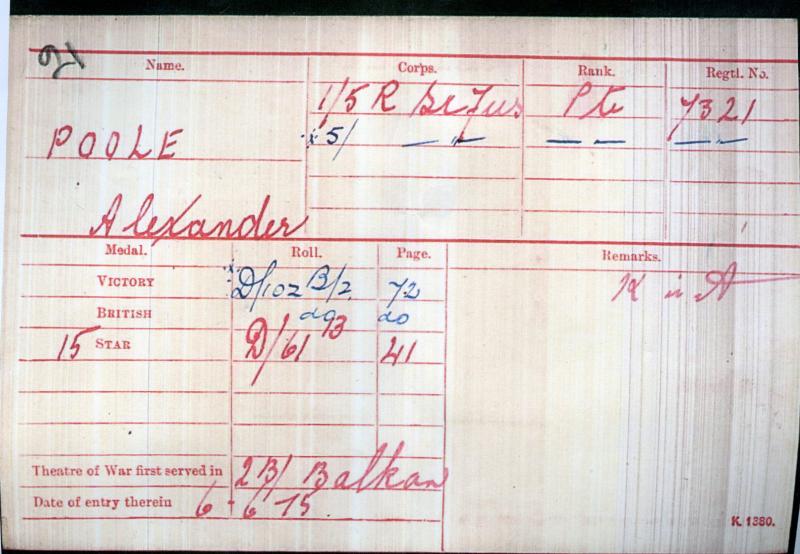 Name. Corps. Rank. Regtl. No.
1/5 R Sc Fus Pte 7321
POOLE x 5/ — " — — " — — " —
Alexander
Medal. Roll. Page. Remarks.
VICTORY D/102 B/2 72 K in A
BRITISH do do
15 STAR D/61 B 41
Theatre of War first served in 2B/ Balkan
Date of entry therein 6-6-15
K. 1380.